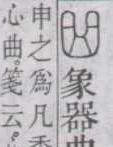 象器曲
申之爲凡委
心曲。箋云。